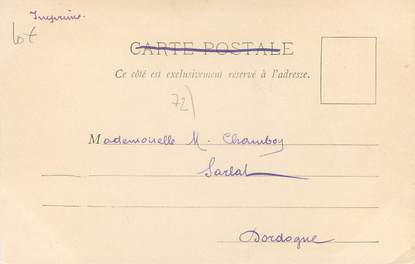 Imprimé.
lot
CARTE POSTALE
Ce côté est exclusivement reservé à l'adresse.
72)
Mademoiselle M. Chamboy
Sarlat
Dordogne